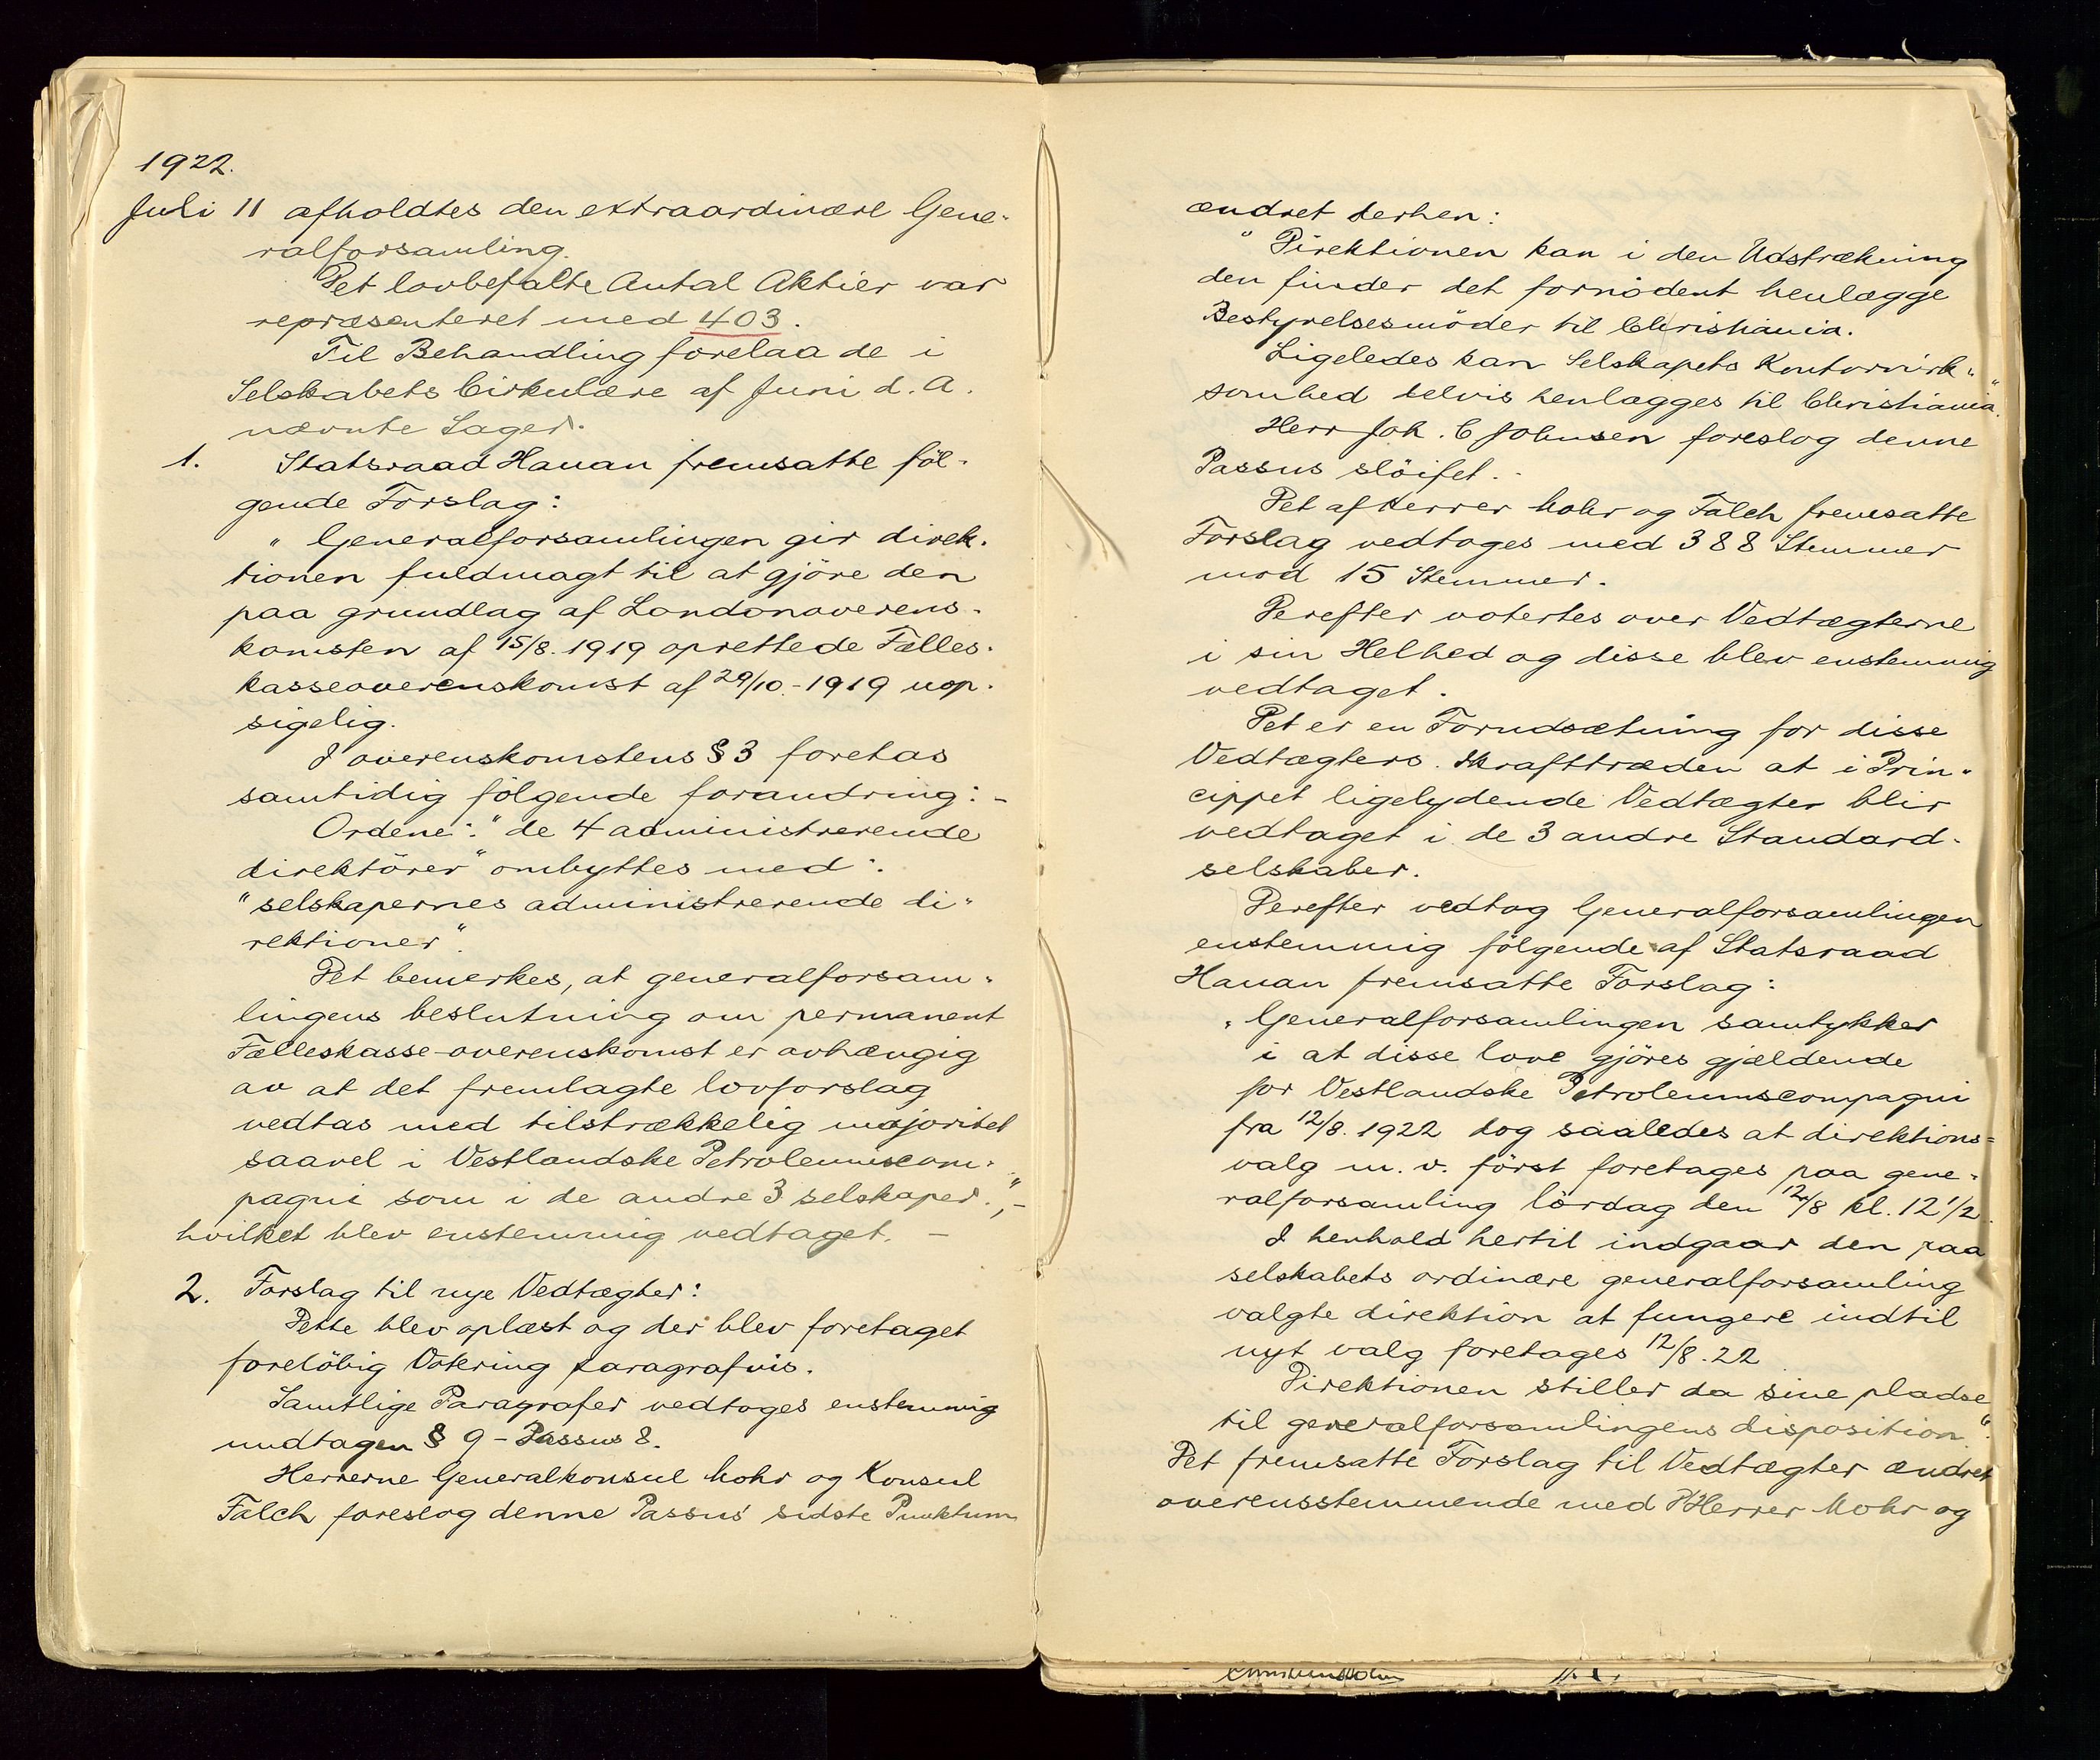 1922.
Juli 11 afholdtes den extraordinære Gene-
ralforsamling.
Det lovbefalte Antal Aktier var
repræsenteret med 403.
Til Behandling forelaa de i
Selskabets Cirkulære af Juni d. A.
nævnte Sager.
1. Statsraad Hauan fremsatte föl-
gende Forslag:
" Generalforsamlingen gir direk-
tionen fuldmagt til at gjöre den
paa grundlag af Londonoverens-
komsten af 15/8. 1919 oprettede Fælles-
kasseoverenskomst af 29/10.-1919 uop-
sigelig.
I overenskomstens § 3 foretas
samtidig fölgende forandring: -
Ordene: "de 4 administrerende
direktörer" ombyttes med:
"selskapernes administrerende di-
rektioner".
Det bemerkes, at generalforsam-
lingens beslutning om permanent
Fælleskasse-overenskomst er avhængig
av at det fremlagte lovforslag
vedtas med tilstrækkelig majoritet
saavel i Vestlandske Petroleumscom-
pagni som i de andre 3 selskaper.", -
hvilket blev enstemmig vedtaget. -
2. Forslag til nye Vedtægter:
Dette blev oplæst og der blev foretaget
forelöbig Votering paragrafvis.
Samtlige Paragrafer vedtoges enstemmig
undtagen § 9 - Passus 8.
Herrerne Generalkonsul Mohr og Konsul
Falch foreslog denne Passus' sidste Punktum
ændret derhen:
" Direktionen kan i den Udstrækning
den finder det fornödent henlægge
Bestyrelsesmöder til Christiania.
Ligeledes kan Selskapets Kontorvirk-
somhed delvis henlægges til Christiania."
Herr Joh. C Johnsen foreslog denne
Passus slöifet. -
Det af Herrer Mohr og Falch fremsatte
Forslag vedtoges med 388 Stemmer
mod 15 Stemmer.
Derefter votertes over Vedtægterne
i sin Helhed og disse blev enstemmig
vedtaget.
Det er en Forudsætning for disse
Vedtægters Ikrafttræden at i Prin-
cippet ligelydende Vedtægter blir
vedtaget i de 3 andre Standard-
selskaber.
Derefter vedtog Generalforsamlingen
enstemmig fölgende af Statsraad
Hauan fremsatte Forslag:
"Generalforsamlingen samtykker
i at disse love gjöres gjældende
for Vestlandske Petroleumscompagni
fra 12/8. 1922 dog saaledes at direktions-
valg m. v. först foretages paa gene-
ralforsamling lördag den 12/8 kl. 12 1/2.
I henhold hertil indgaar den paa
selskabets ordinære generalforsamling
valgte direktion at fungere indtil
nyt valg foretages 12/8. 22
Direktionen stiller da sine pladse
til generalforsamlingens disposition".
Det fremsatte Forslag til Vedtægter ændret
overensstemmende med Herrer Mohr og